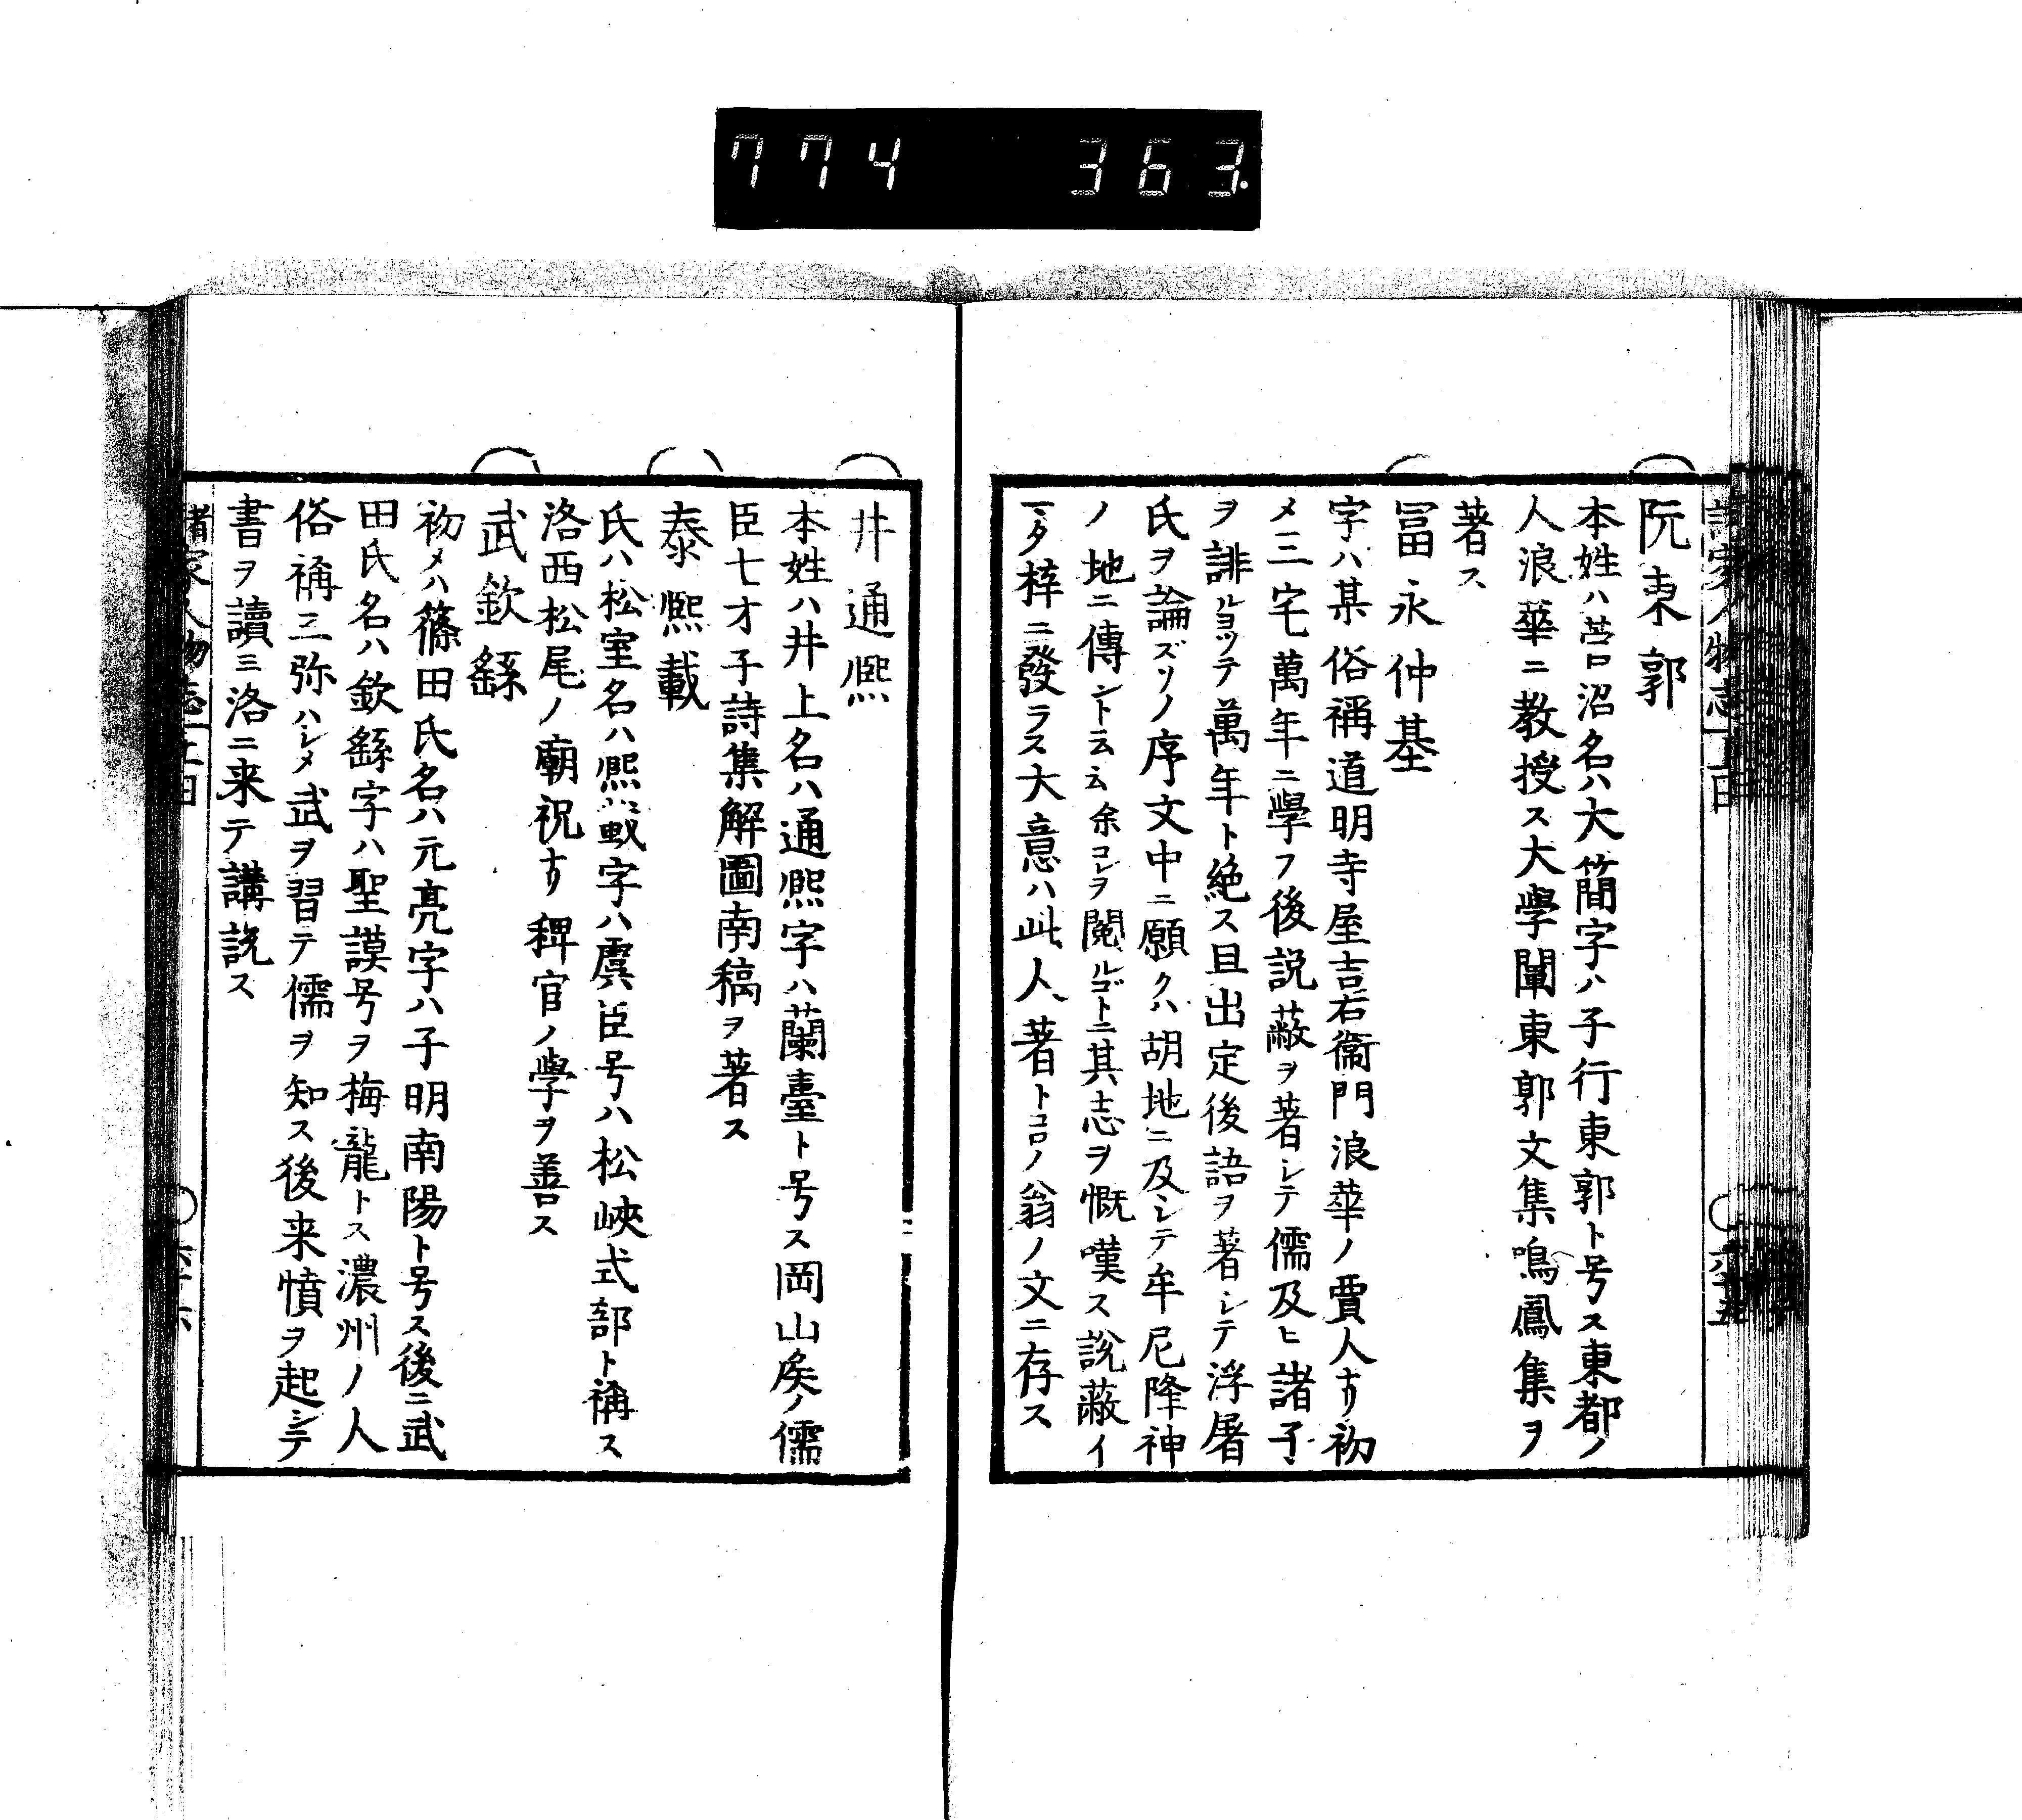 774 363.
阮東郭
本姓ハ菅沼名ハ大簡字ハ子行東郭ト号ス東都ノ
人浪華ニ教授ス大學闡東郭文集鳴鳳集ヲ
著ス
冨永仲基
字ハ某俗稱道明寺屋吉右衞門浪華ノ賈人ナリ初
メ三宅萬年ニ學フ後説蔽ヲ著シテ儒及ヒ諸子
ヲ誹ルヨツテ萬年ト絶ス且出定後語ヲ著シテ浮屠
氏ヲ論ズソノ序文中ニ願クハ胡地ニ及シテ牟尼降神
ノ地ニ傳ント云云余コレヲ閲ルゴトニ其志ヲ慨嘆ス説蔽イ
マタ梓ニ發ラス大意ハ此人著トコロノ翁ノ文ニ存ス
井通熈
本姓ハ井上名ハ通熈字ハ蘭臺ト号ス岡山矦ノ儒
臣七才子詩集解圖南稿ヲ著ス
泰熈載
氏ハ松室名ハ熈載字ハ虞臣号ハ松峽式部ト稱ス
洛西松尾ノ廟祝ナリ稗官ノ學ヲ善ス
武欽繇
初メハ篠田氏名ハ元亮字ハ子明南陽ト号ス後ニ武
田氏名ハ欽繇字ハ聖謨号ヲ梅龍トス濃州ノ人
俗稱三弥ハシメ武ヲ習テ儒ヲ知ス後来憤ヲ起シテ
書ヲ讀ミ洛ニ来テ講説ス
諸家人物志